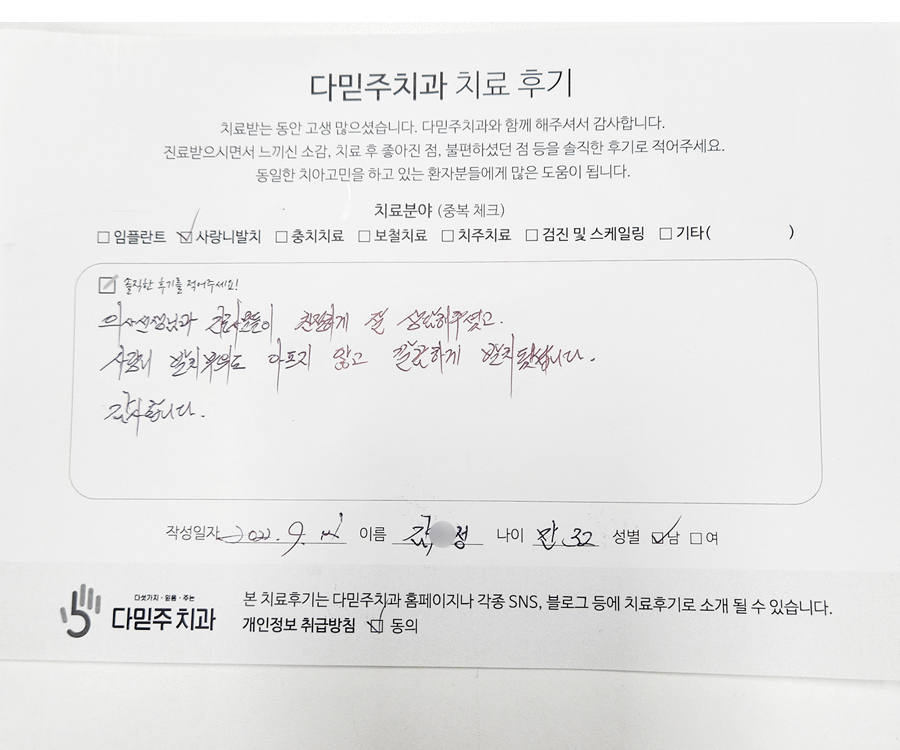 다믿주치과 치료 후기
치료받는 동안 고생 많으셨습니다. 다믿주치과와 함께 해주셔서 감사합니다.
진료받으시면서 느끼신 소감, 치료 후 좋아진 점, 불편하셨던 점 등을 솔직한 후기로 적어주세요.
동일한 치아고민을 하고 있는 환자분들에게 많은 도움이 됩니다.
치료분야 (중복 체크)
□ 임플란트 ☑ 사랑니발치 □ 충치치료 □ 보철치료 □ 치주치료 □ 검진 및 스케일링 □ 기타( )
솔직한 후기를 적어주세요!
의사선생님과 간호사분들이 친절하게 잘 상담해주셨고.
사랑니 발치부위도 아프지 않고 깔끔하게 발치됐습니다.
감사합니다.
작성일자 2022. 9. 이름 정 나이 만 32 성별 ☑남 □여
다섯가지·믿음·주는
다믿주치과
본 치료후기는 다믿주치과 홈페이지나 각종 SNS, 블로그 등에 치료후기로 소개 될 수 있습니다.
개인정보 취급방침 ☑ 동의